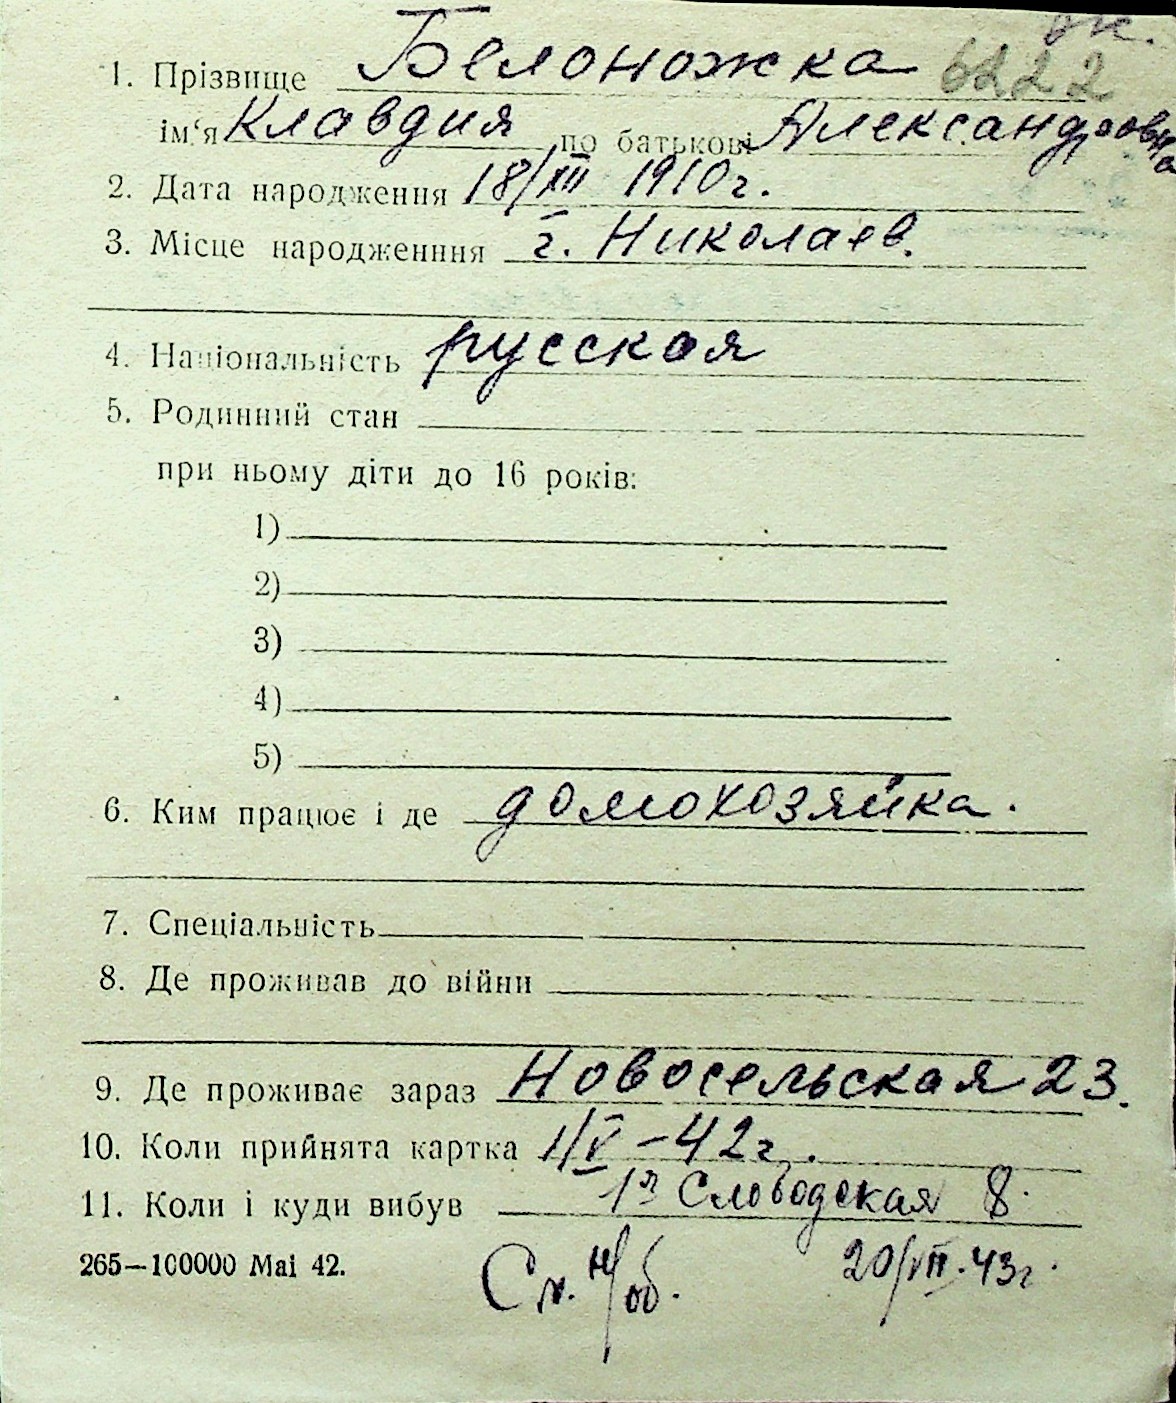 ж.
1. Прізвище Белоножка 6222
ім'я Клавдия по батькові Александровна
2. Дата народження 18/XII 1910 г.
3. Місце народженння г. Николаев.
4. Національність русская
5. Родинний стан
при ньому діти до 16 років:
1)
2)
3)
4)
5)
6. Ким працює і де домохозяйка.
7. Спеціальність
8. Де проживав до війни
9. Де проживає зараз Новосельская 23.
10. Коли прийнята картка 1/V - 42 г.
11. Коли і куди вибув 1я Слободская 8.
265—100000 Mai 42. См. н/об. 20/VII.43г.